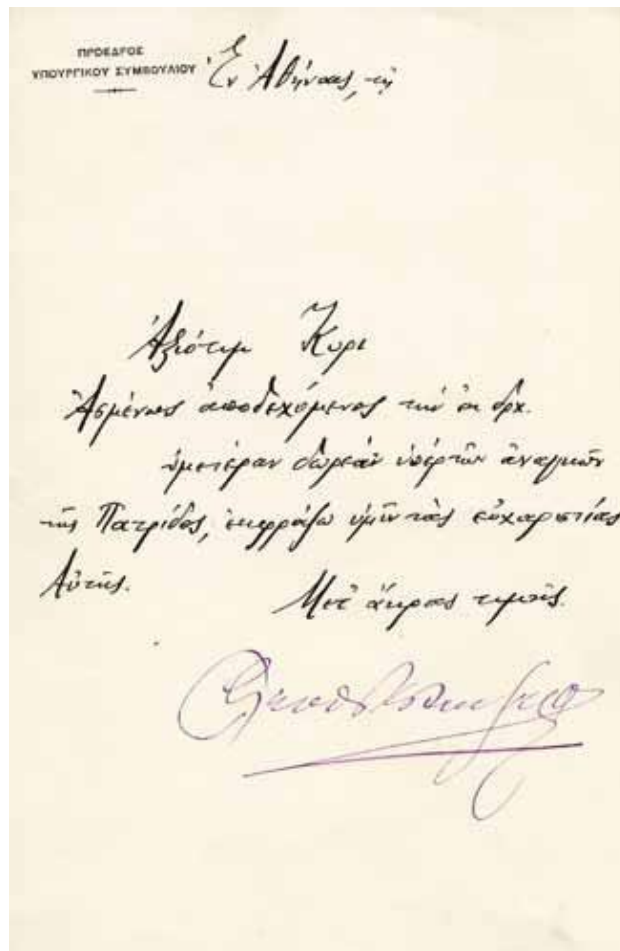 ΠΡΟΕΔΡΟΣ
ΥΠΟΥΡΓΙΚΟΥ ΣΥΜΒΟΥΛΙΟΥ
Ἐν Ἀθήναις, τῇ
Ἀξιότιμ Κυρι
Ἀσμένως ἀποδεχόμενος τὴν ἐκ δρχ.
ὑμετέραν δωρεὰν ὑπὲρ τῶν ἀναγκῶν
τῆς Πατρίδος, ἐκφράζω ὑμῖν τὰς εὐχαριστίας
Αὐτῆς.
Μετ' ἄκρας τιμῆς.